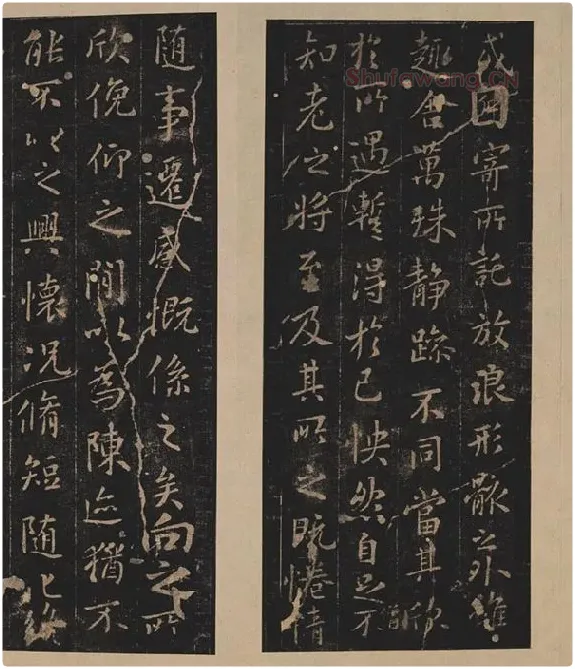 或因寄所託放浪形骸之外雖
趣舍萬殊静躁不同當其欣
於所遇暫得於己怏然自足不
知老之將至及其所之既惓情
随事遷感慨係之矣向之所
欣俛仰之閒以為陳迹猶不
能不以之興懷況脩短随化終
Shufawang.CN